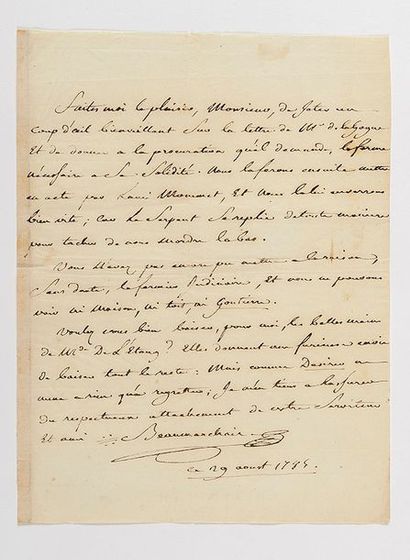 Faites moi le plaisir, Monsieur, de jeter un
coup d'œil bienveillant sur la lettre de Mr de la Hogue
Et de donner a la procuration qu'il demande, la forme
nécessaire a Sa Solidité. Nous la ferons ensuite mettre
en acte par Louis Momet, Et nous la lui enverrons
bien vite; car Le Serpent Se replie de toute maniere
pour tacher de nous mordre la bas.
Vous n'avez pas encore pu mettre a la raison,
Sans doute, la fermiere Judiciaire, Et nous ne pouvons
voir ni Maison, ni toit, ni Goutiere.
Voulez vous bien baiser, pour moi, les belles mains
de Mde De L'Etang? Elles donnent une furieuse envie
de baiser tout le reste: Mais comme Desirer
mene a rien qu'a regretter; Je m'en tiens a la
du respectueux attachement de votre Serviteur
Et ami Beaumarchais
ce 29 aoust